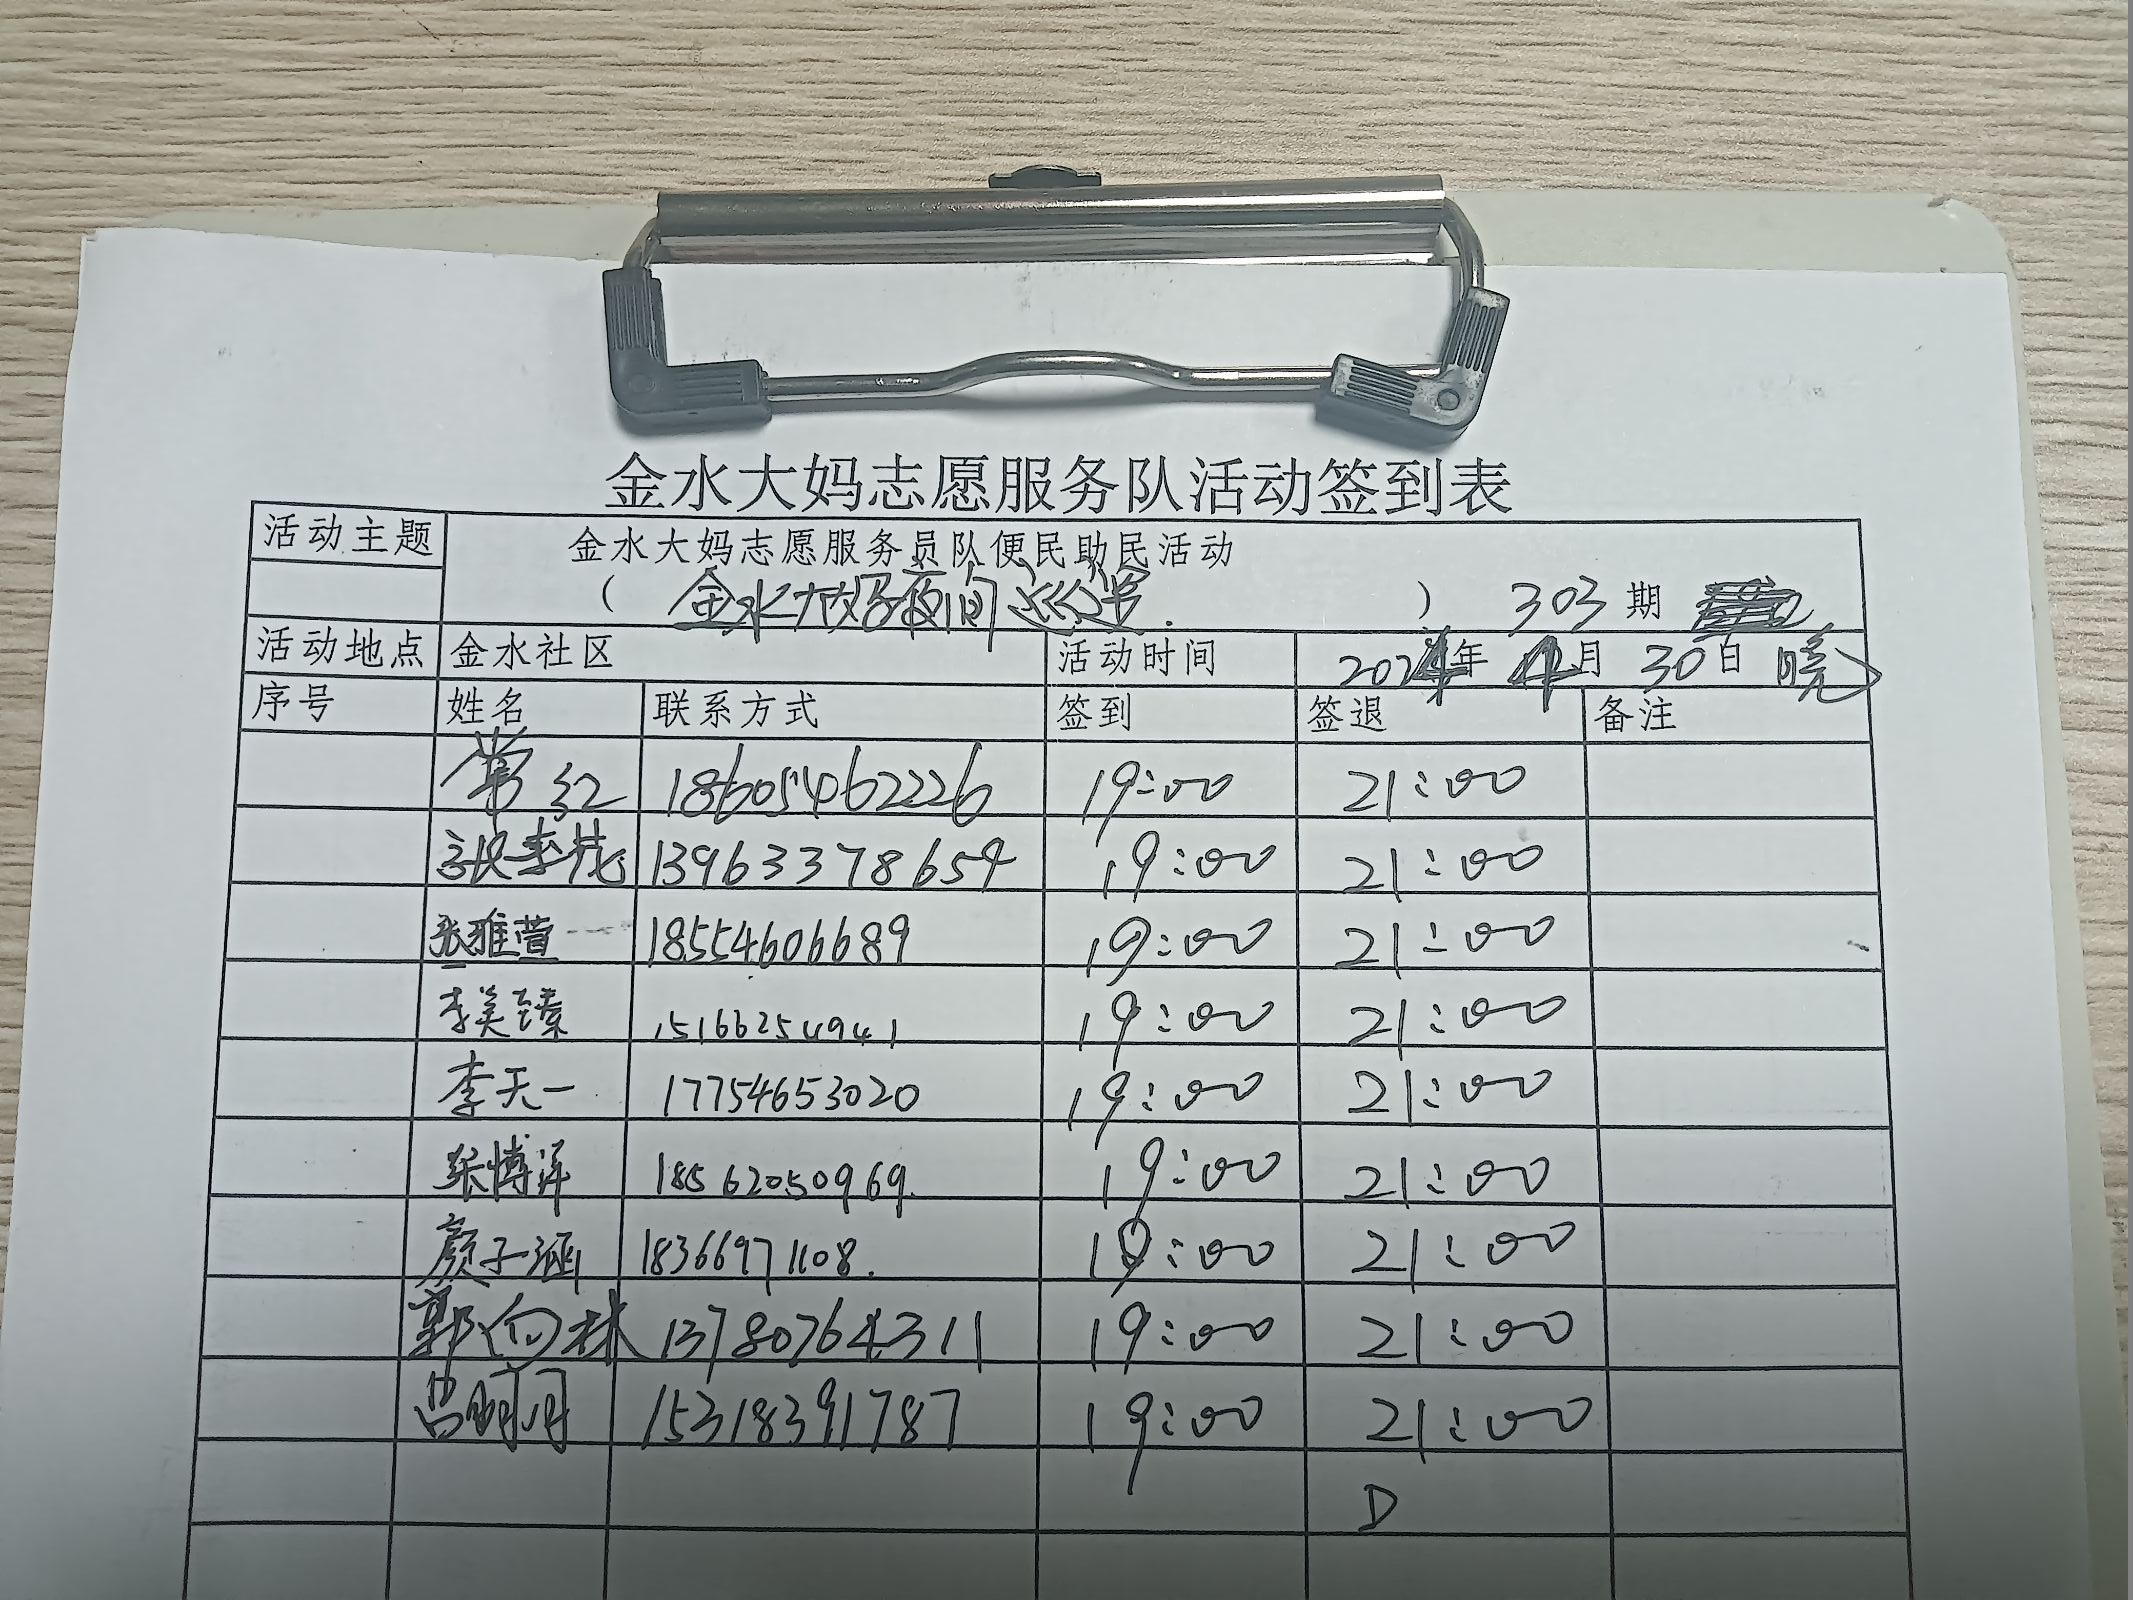 金水大妈志愿服务队活动签到表
活动主题 金水大妈志愿服务员队便民助民活动
（ 金水大妈夜间巡逻. ） 303期
活动地点 金水社区 活动时间 2024年 4月 30日 晚
序号 姓名 联系方式 签到 签退 备注
红 18605462226 19:00 21:00
张季茂 13963378654 19:00 21:00
张雅萱 18554606689 19:00 21:00
李美臻 15166254941 19:00 21:00
李天一 17754653020 19:00 21:00
张博洋 18562050969. 19:00 21:00
颜子涵 18366971108. 19:00 21:00
郭向林 13780764311 19:00 21:00
吕明月 15318391787 19:00 21:00
D